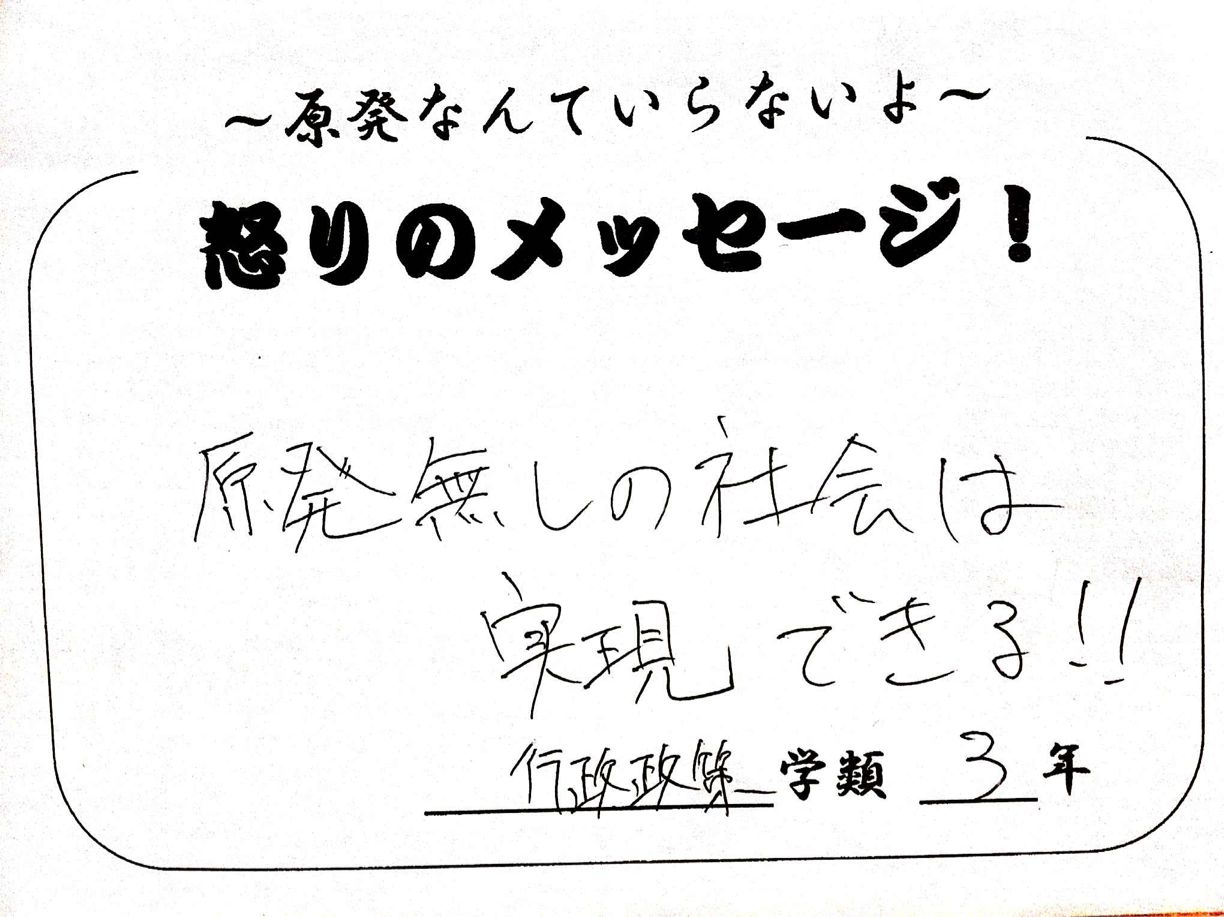 ～原発なんていらないよ～
怒りのメッセージ！
原発無しの社会は
実現できる!!
行政政策学類 3年